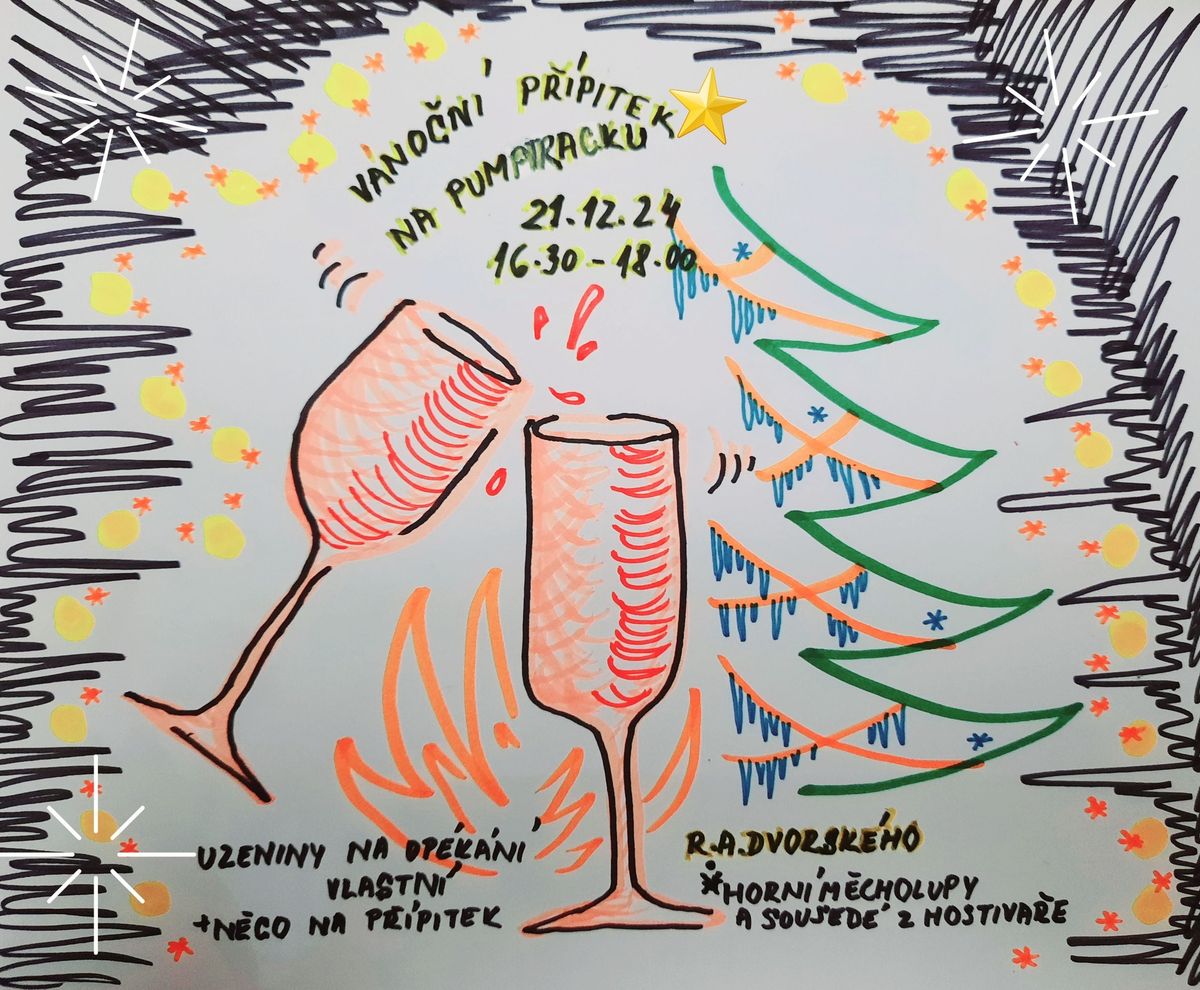 VÁNOČNÍ PŘÍPITEK
NA PUMPTRACKU
21.12.24
16.30 - 18.00
UZENINY NA OPÉKÁNÍ
VLASTNÍ
+NĚCO NA PŘÍPITEK
R.A.DVORSKÉHO
* HORNÍ MĚCHOLUPY
A SOUSEDÉ Z HOSTIVAŘE